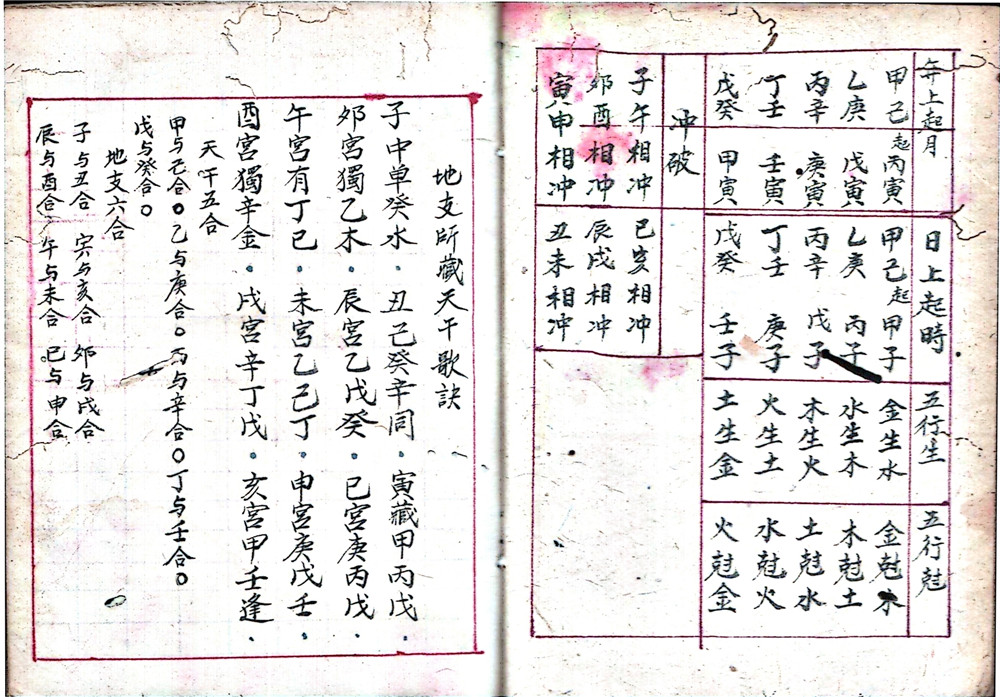 年上起月
甲己起丙寅
乙庚 戊寅
丙辛 庚寅
丁壬 壬寅
戊癸 甲寅
日上起時
甲己起甲子
乙庚 丙子
丙辛 戊子
丁壬 庚子
戊癸 壬子
五行生
金生水
水生木
木生火
火生土
土生金
五行尅
金尅木
木尅土
土尅水
水尅火
火尅金
冲破
子午相冲
卯酉相冲
寅申相冲
巳亥相冲
辰戌相冲
丑未相冲
地支所藏天干歌訣
子中单癸水.丑己癸辛同.寅藏甲丙戊.
卯宮獨乙木.辰宮乙戊癸.巳宮庚丙戊.
午宮有丁己.未宮乙己丁.申宮庚戊壬.
酉宮獨辛金.戌宮辛丁戊.亥宮甲壬逢.
天干五合
甲与己合。乙与庚合。丙与辛合。丁与壬合。
戊与癸合。
地支六合
子与丑合 寅与亥合 卯与戌合
辰与酉合 午与未合 巳与申合